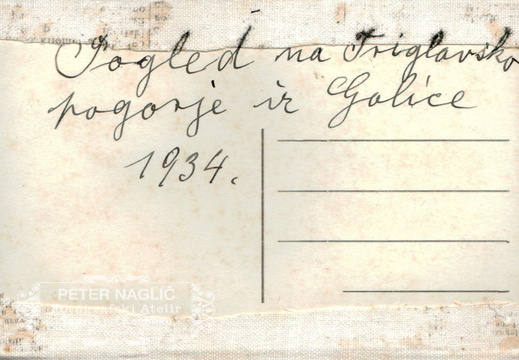 Pogled na Triglavsko
pogorje iz Golice
1934.
PETER NAGLIČ
Fotografski Atelir